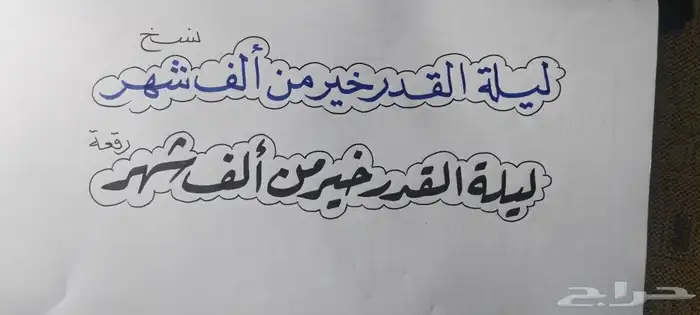 نسخ
ليلة القدر خير من ألف شهر
رقعة
ليلة القدر خير من ألف شهر
حراج